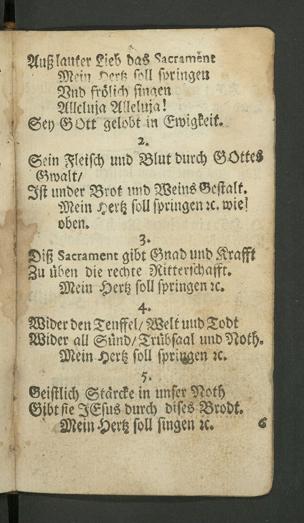 Auß lauter Lieb das Sacrament
Mein Hertz soll springen
Vnd frölich singen
Alleluja Alleluja!
Sey GOtt gelobt in Ewigkeit.
2.
Sein Fleisch und Blut durch GOttes
Gwalt/
Ist under Brot und Weins Gestalt.
Mein Hertz soll springen ꝛc. wie
oben.
3.
Diß Sacrament gibt Gnad und Krafft
Zu üben die rechte Ritterschafft.
Mein Hertz soll springen ꝛc.
4.
Wider den Teuffel/ Welt und Todt
Wider all Sünd/ Trübsaal und Noth.
Mein Hertz soll springen ꝛc.
5.
Geistlich Stärcke in unser Noth
Gibt sie JEsus durch dises Brodt.
Mein Hertz soll singen ꝛc. 6